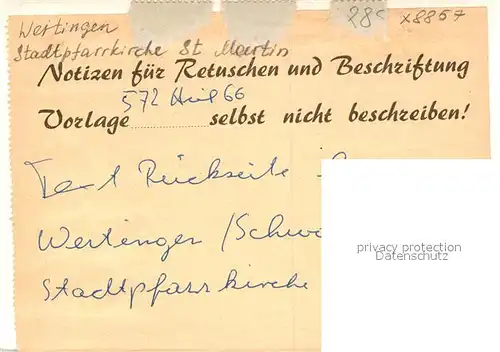 Wertingen
Stadtpfarrkirche St. Martin
28 x8857
Notizen für Retuschen und Beschriftung
572 66
Vorlage selbst nicht beschreiben!
Text Rückseite
Wertingen /Schw
Stadtpfarrkirche
privacy protection
Datenschutz